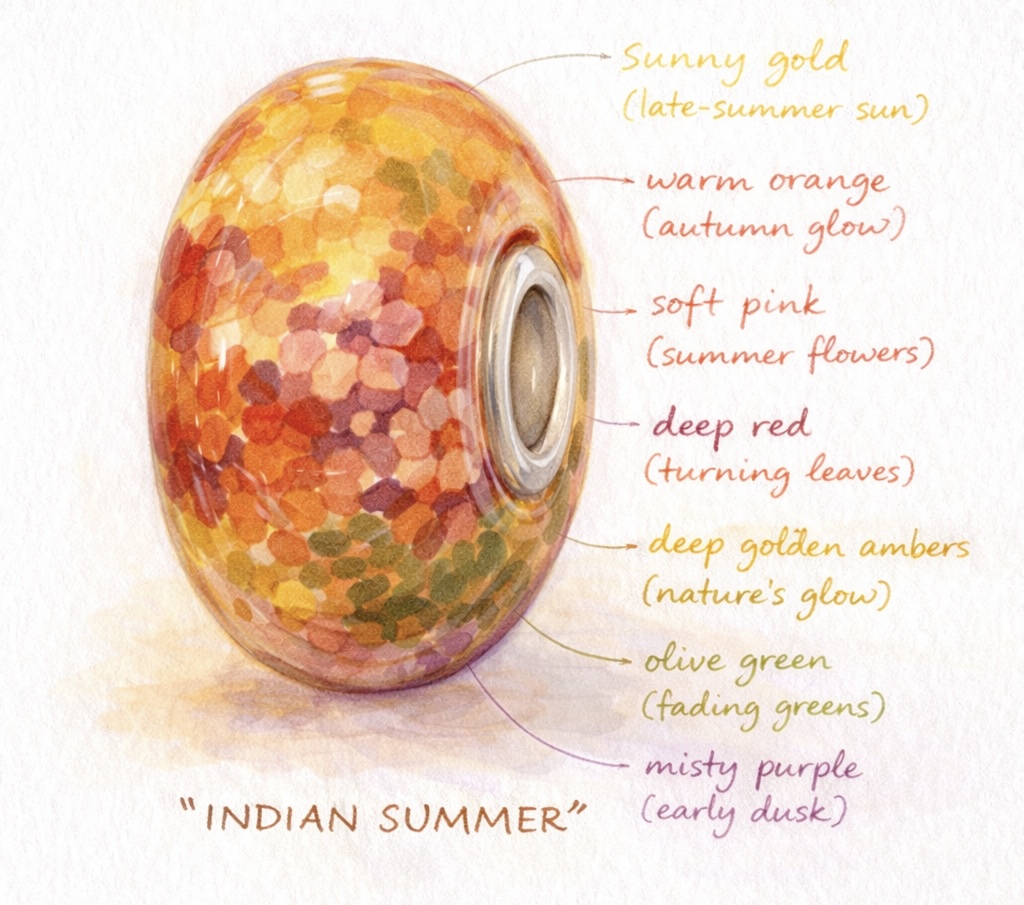 Sunny gold
(late-summer sun)
warm orange
(autumn glow)
soft pink
(summer flowers)
deep red
(turning leaves)
deep golden ambers
(nature's glow)
olive green
(fading greens)
misty purple
(early dusk)
"INDIAN SUMMER"